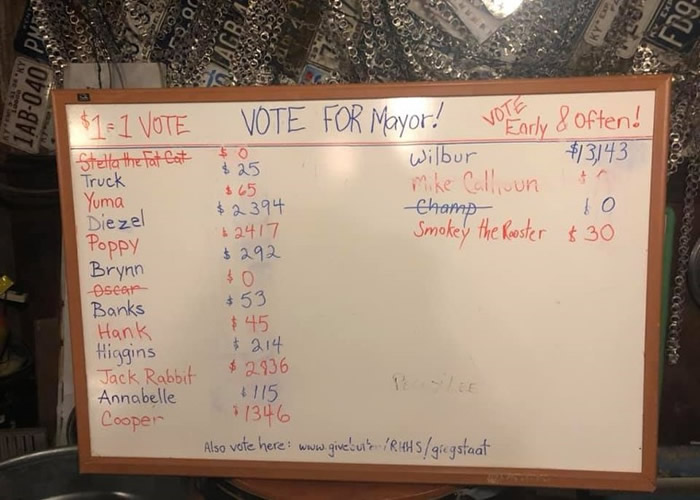 $1=1 VOTE VOTE FOR Mayor! VOTE Early & Often!
Stella the Fat Cat $ 0
Truck $ 25
Yuma $ 65
Diezel $ 2394
Poppy $ 2417
Brynn $ 292
Oscar $ 0
Banks $ 53
Hank $ 45
Higgins $ 214
Jack Rabbit $ 2936
Annabelle $ 115
Cooper $ 1346
Wilbur $13,143
Mike Calhoun $
Champ $ 0
Smokey the Rooster $ 30
Also vote here: /RHHS/gregstaat
1AB-040